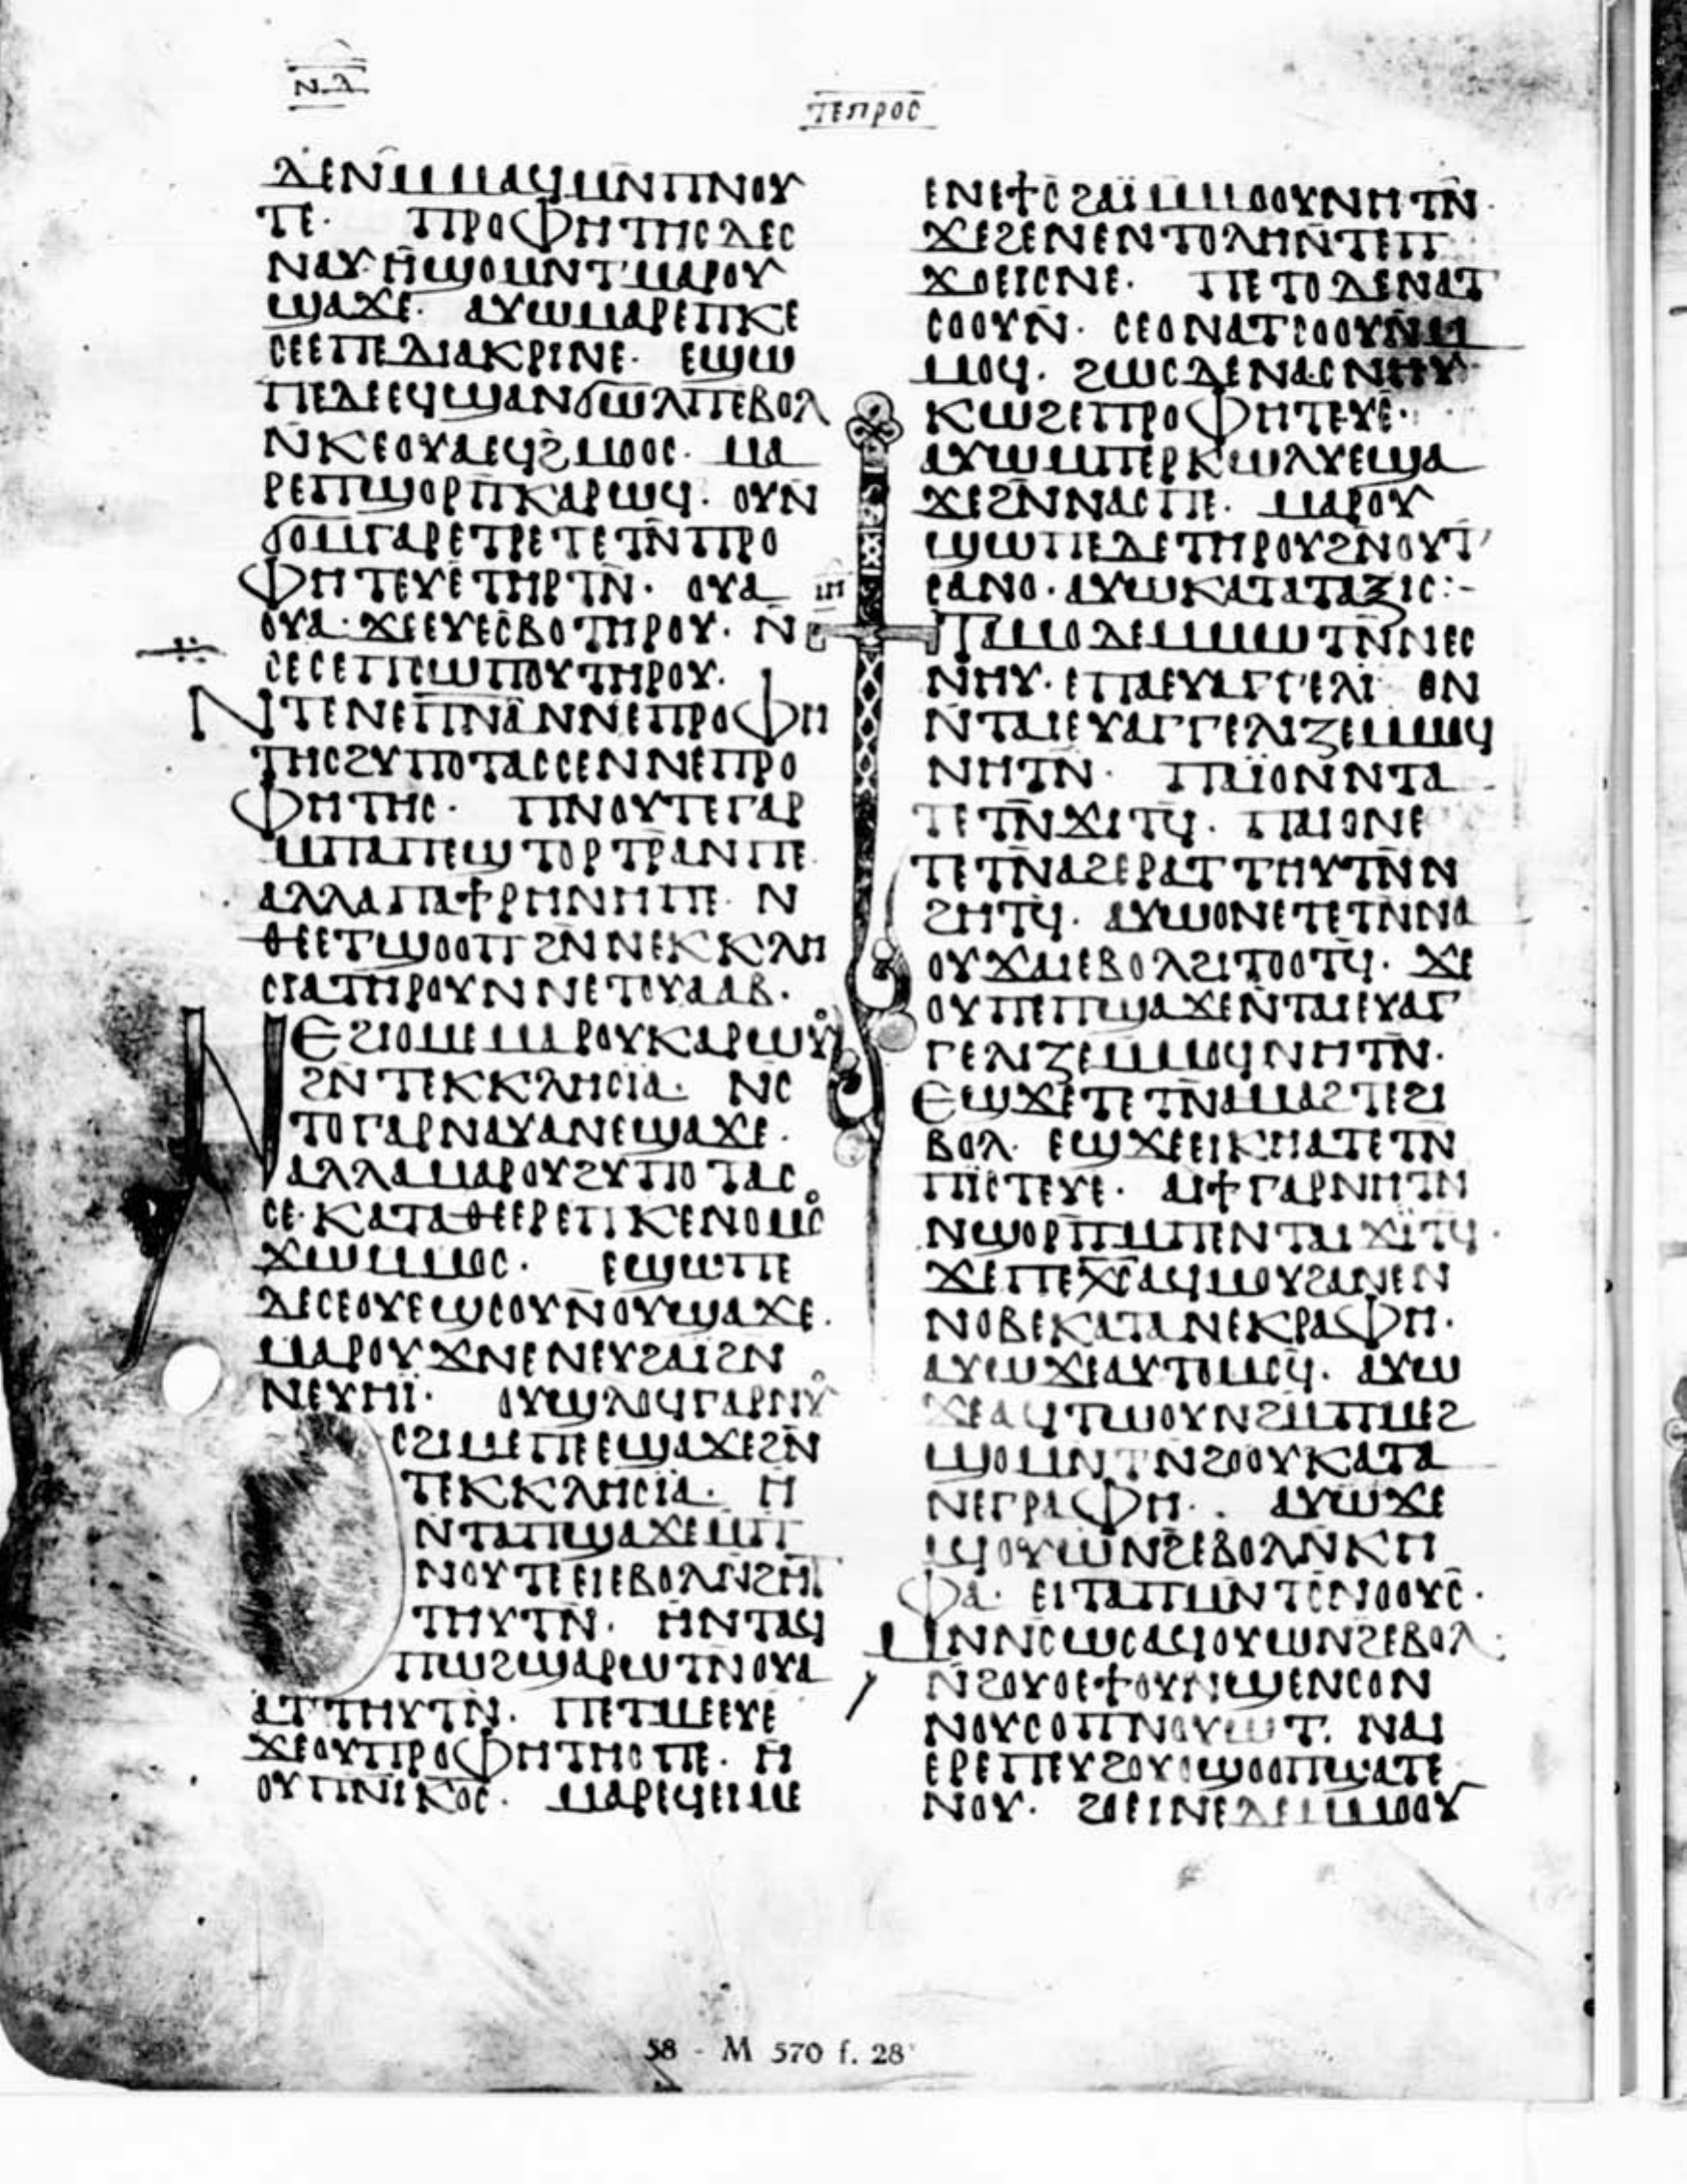 ⲛⲇ
ⲧⲉⲡⲣⲟⲥ
ⲇⲉⲛⲙⲙⲁϥⲙⲛⲡⲛⲟⲩ
ⲧⲉ· ⲡⲣⲟⲫⲏⲧⲏⲥⲇⲉⲥ
ⲛⲁⲩ·ⲏϣⲟⲙⲛⲧʼⲙⲁⲣⲟⲩ
ϣⲁϫⲉ· ⲁⲩⲱⲙⲁⲣⲉⲡⲕⲉ
ⲥⲉⲉⲡⲉⲇⲓⲁⲕⲣⲓⲛⲉ· ⲉϣⲱ
ⲡⲉⲇⲉⲉϥϣⲁⲛϭⲱⲗⲡⲉⲃⲟⲗ
ⲛⲕⲉⲟⲩⲁⲉϥϩⲙⲟⲟⲥ· ⲙⲁ
ⲣⲉⲡϣⲟⲣⲡⲕⲁⲣⲱϥ· ⲟⲩⲛ̄
ϭⲟⲙⲅⲁⲣⲉⲧⲣⲉⲧⲉⲧⲛ̄ⲡⲣⲟ
ⲫⲏⲧⲉⲩⲉⲧⲏⲣⲧⲛ̄· ⲟⲩⲁ
ⲟⲩⲁ·ϫⲉⲉⲩⲉⲥⲃⲟⲧⲏⲣⲟⲩ· ⲛ̄
ⲥⲉⲥⲉⲡⲥⲱⲡⲟⲩⲧⲏⲣⲟⲩ·
ⲛⲧⲉⲛⲉⲡⲛ̄ⲁ̄ⲛⲛⲉⲡⲣⲟⲫⲏ
ⲧⲏⲥϩⲩⲡⲟⲧⲁⲥⲥⲉⲛⲛⲉⲡⲣⲟ
ⲫⲏⲧⲏⲥ· ⲡⲛⲟⲩⲧⲉⲅⲁⲣ
ⲙⲡⲁⲡⲉϣⲧⲟⲣⲧⲣⲁⲛⲡⲉ
ⲁⲗⲗⲁⲡⲁϯⲣⲏⲛⲏⲡⲉ· ⲛ
ⲑⲉⲉⲧϣⲟⲟⲡϩⲛ̄ⲛⲉⲕⲕⲗⲏ
ⲥⲓⲁⲧⲏⲣⲟⲩⲛⲛⲉⲧⲟⲩⲁⲁⲃ·
ⲛⲉϩⲓⲟⲙⲉⲙⲁⲣⲟⲩⲕⲁⲣⲱⲟⲩ
ϩⲛ̄ⲧⲉⲕⲕⲗⲏⲥⲓⲁ· ⲛⲥ
ⲧⲟⲅⲁⲣⲛⲁⲩⲁⲛⲉϣⲁϫⲉ·
ⲁⲗⲗⲁⲙⲁⲣⲟⲩϩⲩⲡⲟⲧⲁⲥ
ⲥⲉ·ⲕⲁⲧⲁⲑⲉⲉⲣⲉⲡⲕⲉⲛⲟⲙⲟⲥ
ϫⲱⲙⲙⲟⲥ· ⲉϣⲱⲡⲉ
ⲇⲉⲥⲉⲟⲩⲉϣⲥⲟⲩⲛ̄ⲟⲩϣⲁϫⲉ·
ⲙⲁⲣⲟⲩϫⲛⲉⲛⲉⲩϩⲁⲓϩⲛ
ⲛⲉⲩⲏⲓ̈· ⲟⲩϣⲗⲟϥⲅⲁⲣⲛⲟⲩ
ⲥϩⲓⲙⲉⲡⲉⲉϣⲁϫⲉϩⲛ̄
ⲧⲉⲕⲕⲗⲏⲥⲓⲁ· ⲏ
ⲛⲧⲁⲡϣⲁϫⲉⲙⲡ
ⲛⲟⲩⲧⲉⲉⲓⲉⲃⲟⲗⲛϩⲏ
ⲧⲏⲩⲧⲛ̄· ⲏⲛⲧⲁϥ
ⲡⲱϩϣⲁⲣⲱⲧⲛⲟⲩⲁ
ⲁⲧⲧⲏⲩⲧⲛ̄· ⲡⲉⲧⲙⲉⲉⲩⲉ
ϫⲉⲟⲩⲡⲣⲟⲫⲏⲧⲏⲥⲡⲉ· ⲏ
ⲟⲩⲡⲛ̄ⲓⲕⲟⲥ· ⲙⲁⲣⲉϥⲉⲓⲙⲉ
ⲉⲛⲉϯⲥϩⲁⲓ̈ⲙⲙⲟⲟⲩⲛⲏⲧⲛ̄·
ϫⲉϩⲉⲛⲉⲛⲧⲟⲗⲏⲛ̄ⲧⲉⲡ
ϫⲟⲉⲓⲥⲛⲉ· ⲡⲉⲧⲟⲇⲉⲛⲁⲧ
ⲥⲟⲟⲩⲛ· ⲥⲉⲟⲛⲁⲧⲥⲟⲟⲩⲛⲙ
ⲙⲟϥ· ϩⲱⲥⲇⲉⲛⲁⲥⲛⲏⲩ
ⲕⲱϩⲉⲡⲣⲟⲫⲏⲧⲉⲩⲉ·
ⲁⲩⲱⲙⲡⲉⲣⲕⲱⲗⲩⲉϣⲁ
ϫⲉϩⲛ̄ⲛⲁⲥⲡⲉ· ⲙⲁⲣⲟⲩ
ϣⲱⲡⲉⲇⲉⲧⲏⲣⲟⲩϩⲛⲟⲩⲧʼ
ⲥⲁⲛⲟ·ⲁⲩⲱⲕⲁⲧⲁⲧⲁⲝⲓⲥ:-
ⲓⲏ
ⲡⲁⲙⲟⲇⲉⲙⲙⲱⲧⲛ̄ⲛⲉⲥ
ⲛⲏⲩ·ⲉⲡⲁⲉⲩⲁⲅⲅⲉⲗⲓ ⲟⲛ
ⲛ̄ⲧⲁⲓⲉⲩⲁⲅⲅⲉⲗⲓⲍⲉⲙⲙⲟϥ
ⲛⲏⲧⲛ̄· ⲡⲁⲓ̈ⲟⲛⲛⲧⲁ
ⲧⲉⲧⲛ̄ϫⲓⲧϥ̄· ⲡⲁⲓⲟⲛⲉ
ⲧⲉⲧⲛ̄ⲁϩⲉⲣⲁⲧⲧⲏⲩⲧⲛ̄ⲛ
ϩⲏⲧϥ̄· ⲁⲩⲱⲟⲛⲉⲧⲉⲧⲛⲛⲁ
ⲟⲩϫⲁⲓⲉⲃⲟⲗϩⲓⲧⲟⲟⲧϥ̄· ϫⲉ
ⲟⲩⲡⲉⲡϣⲁϫⲉⲛ̄ⲧⲁⲓⲉⲩⲁⲅ
ⲅⲉⲗⲓⲍⲉⲙⲙⲟϥⲛⲏⲧⲛ̄·
ⲉϣϫⲉⲧⲉⲧⲛ̄ⲁⲙⲁϩⲧⲉϩⲓ
ⲃⲟⲗ· ⲉϣϫⲉⲉⲓⲕⲏⲁⲧⲉⲧⲛ
ⲡⲓⲥⲧⲉⲩⲉ· ⲁⲓϯⲅⲁⲣⲛⲏⲧⲛ
ⲛϣⲟⲣⲡⲙⲡⲉⲛⲧⲁⲓϫⲓⲧϥ·
ϫⲉⲡⲉⲭ̄ⲥ̄ⲁϥⲙⲟⲩϩⲁⲛⲉⲛ
ⲛⲟⲃⲉⲕⲁⲧⲁⲛⲉⲕⲣⲁⲫⲏ·
ⲁⲩⲱϫⲉⲁⲩⲧⲟⲙⲥϥ· ⲁⲩⲱ
ϫⲉⲁϥⲧⲱⲟⲩⲛϩⲙⲡⲙⲉϩ
ϣⲟⲙⲛⲧⲛϩⲟⲟⲩⲕⲁⲧⲁ
ⲛⲉⲅⲣⲁⲫⲏ· ⲁⲩⲱϫⲉ
ⲁϥⲟⲩⲱⲛϩⲉⲃⲟⲗⲛ̄ⲕⲏ
ⲫⲁ· ⲉⲓⲧⲁⲡⲙⲛⲧⲥⲛⲟⲟⲩⲥ·
ⲙⲛⲛⲥⲱⲥⲁϥⲟⲩⲱⲛϩⲉⲃⲟⲗ·
ⲛ̄ϩⲟⲩⲟⲉϯⲟⲩⲛϣⲉⲛⲥⲟⲛ
ⲛⲟⲩⲥⲟⲡⲛⲟⲩⲱⲧ· ⲛⲁⲓ
ⲉⲣⲉⲡⲉⲩϩⲟⲩⲟϣⲟⲟⲡϣⲁⲧⲉ
ⲛⲟⲩ· ϩⲟⲉⲓⲛⲉⲇⲉⲙⲙⲟⲟⲩ
58 - M 570 f. 28ᵛ